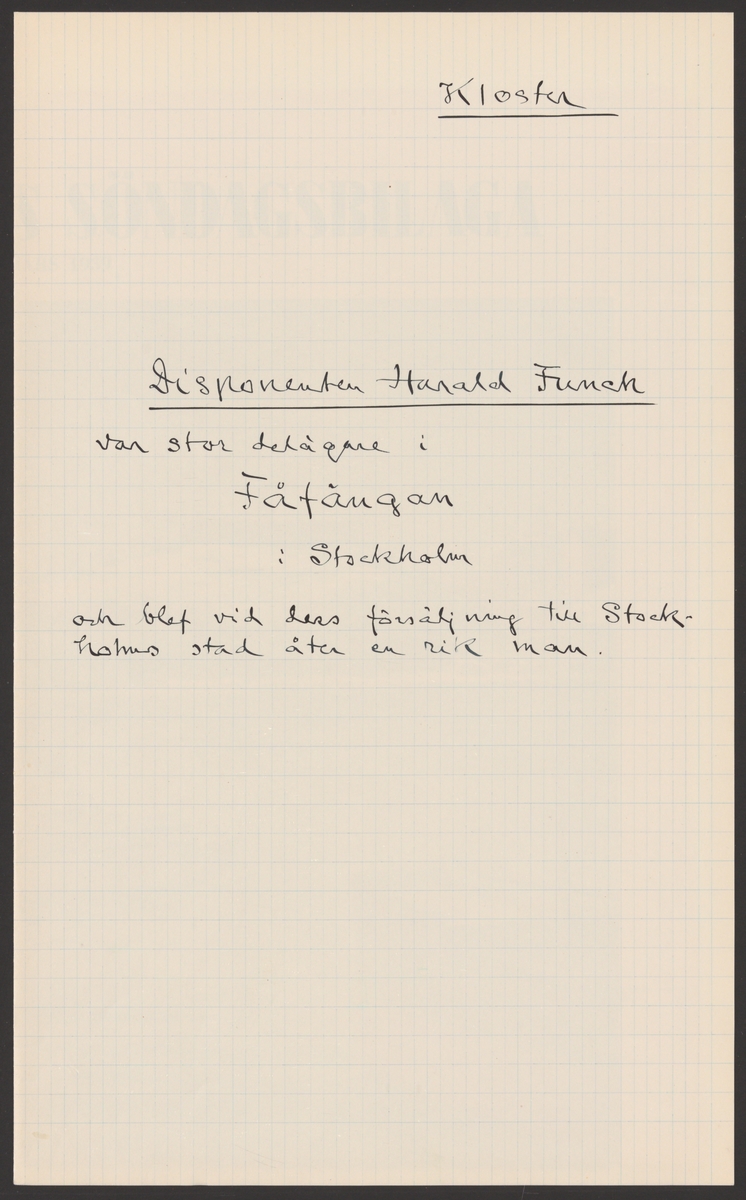 Kloster
SÖNDAGSBILAGA
Disponenten Harald Funck
var stor delägare i
Fåfängan
i Stockholm
och blef vid dess försäljning till Stock-
holms stad åter en rik man.